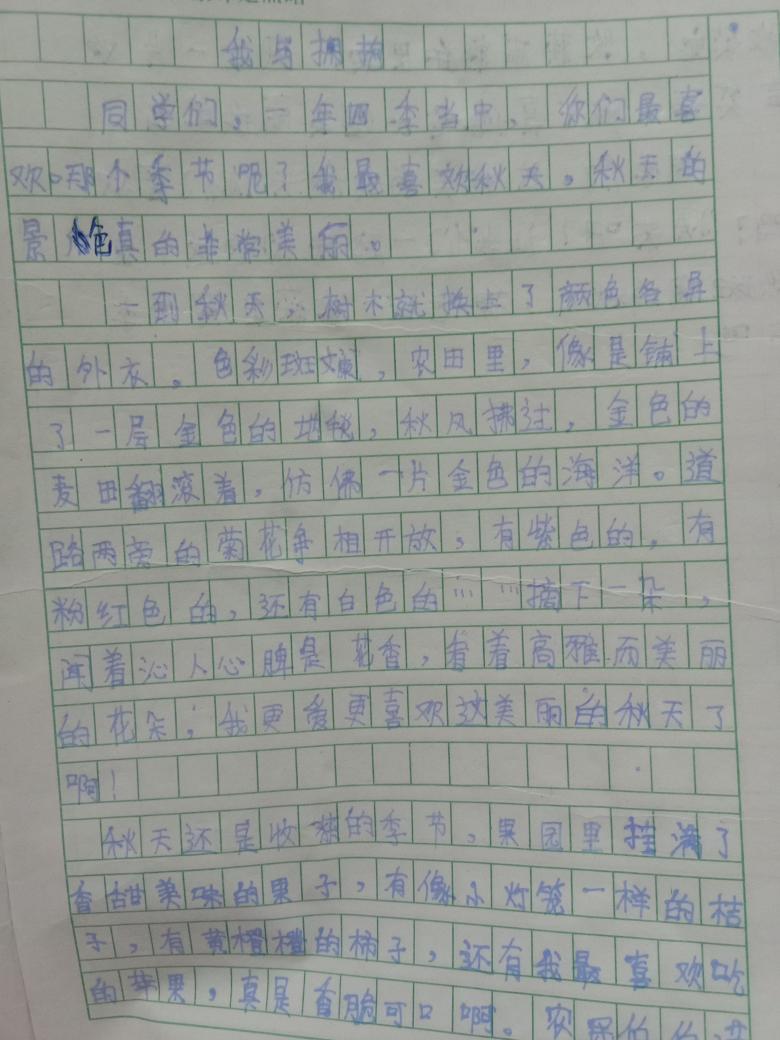 我与拥抱
同学们，一年四季当中，你们最喜
欢哪个季节呢？我最喜欢秋天。秋天的
景色真的非常美丽。
一到秋天，树木就换上了颜色各异
的外衣。色彩斑斓，农田里，像是铺上
了一层金色的地毯，秋风拂过，金色的
麦田翻滚着，仿佛一片金色的海洋。道
路两旁的菊花争相开放，有紫色的，有
粉红色的，还有白色的……摘下一朵，
闻着沁人心脾是花香，看着高雅而美丽
的花朵，我更爱更喜欢这美丽的秋天了
啊！
秋天还是收获的季节，果园里挂满了
香甜美味的果子，有像小灯笼一样的桔
子，有黄橙橙的柿子，还有我最喜欢吃
的苹果，真是香脆可口啊。农